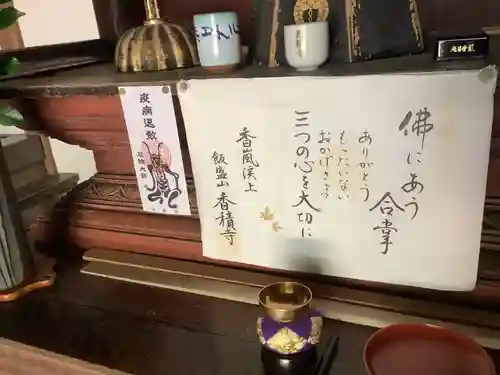 佛にあう
合掌
ありがとう
もったいない
おかげさま
三つの心を大切に
香嵐渓上
飯盛山香積寺
疫病退散